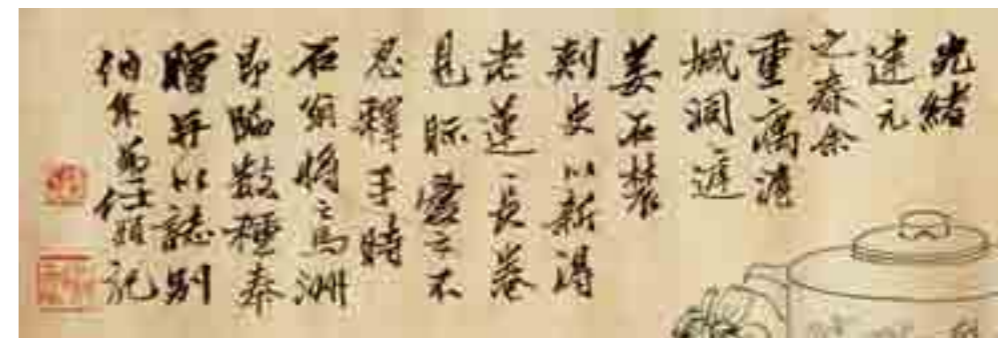 光緒
建元
之春余
重寓滬
城洞遊
姜石裝
刺史以新得
老蓮一長卷
見眎愛之不
忍釋手時
石翁將之鳥洲
即臨數種奉
贈并以誌別
伯年弟任頤記